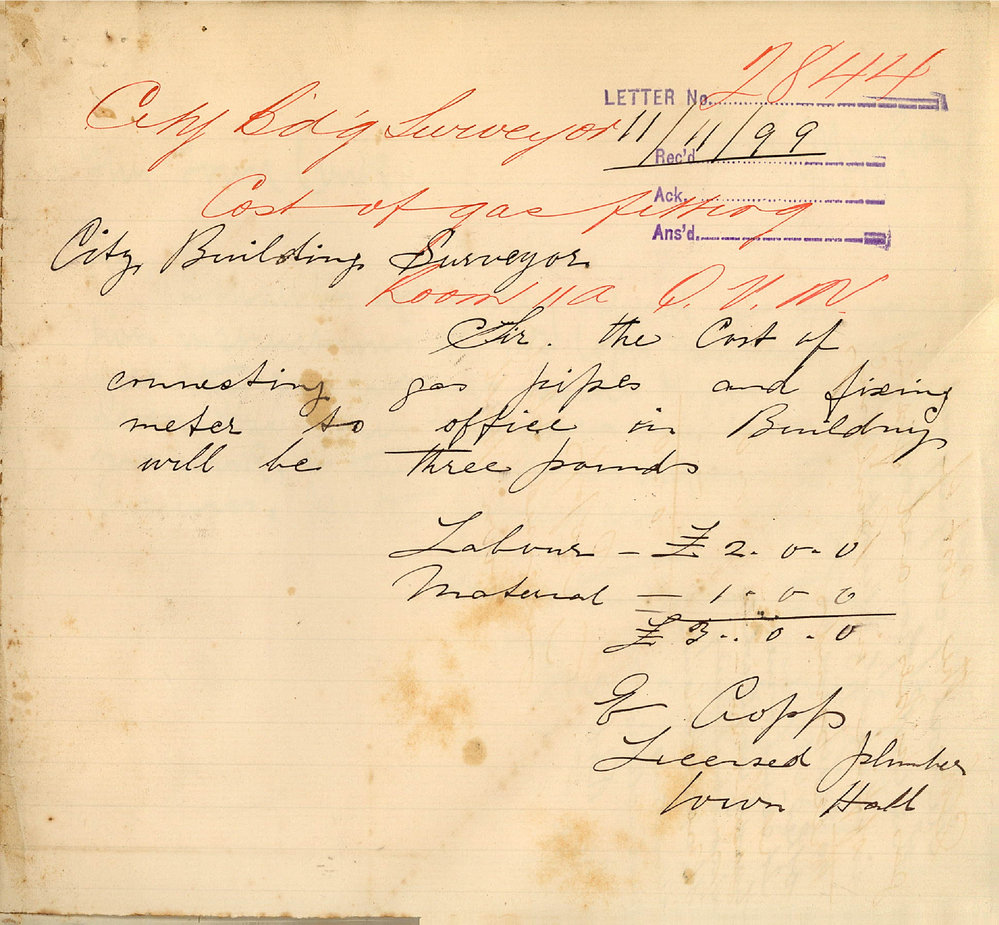 2844
LETTER No.
City Bd'g Surveyor 11/11/99
Rec'd
Ack.
Cost of gas fitting
Ans'd.
City Building Surveyor
Room 11a Q. V. M.
Sir. the Cost of
connecting gas pipes and fixing
meter to office in Building
will be three pounds
Labour — £ 2. 0. 0
Material — 1. 0 0
£ 3. 0. 0
E Cropp
Licensed plumber
town Hall